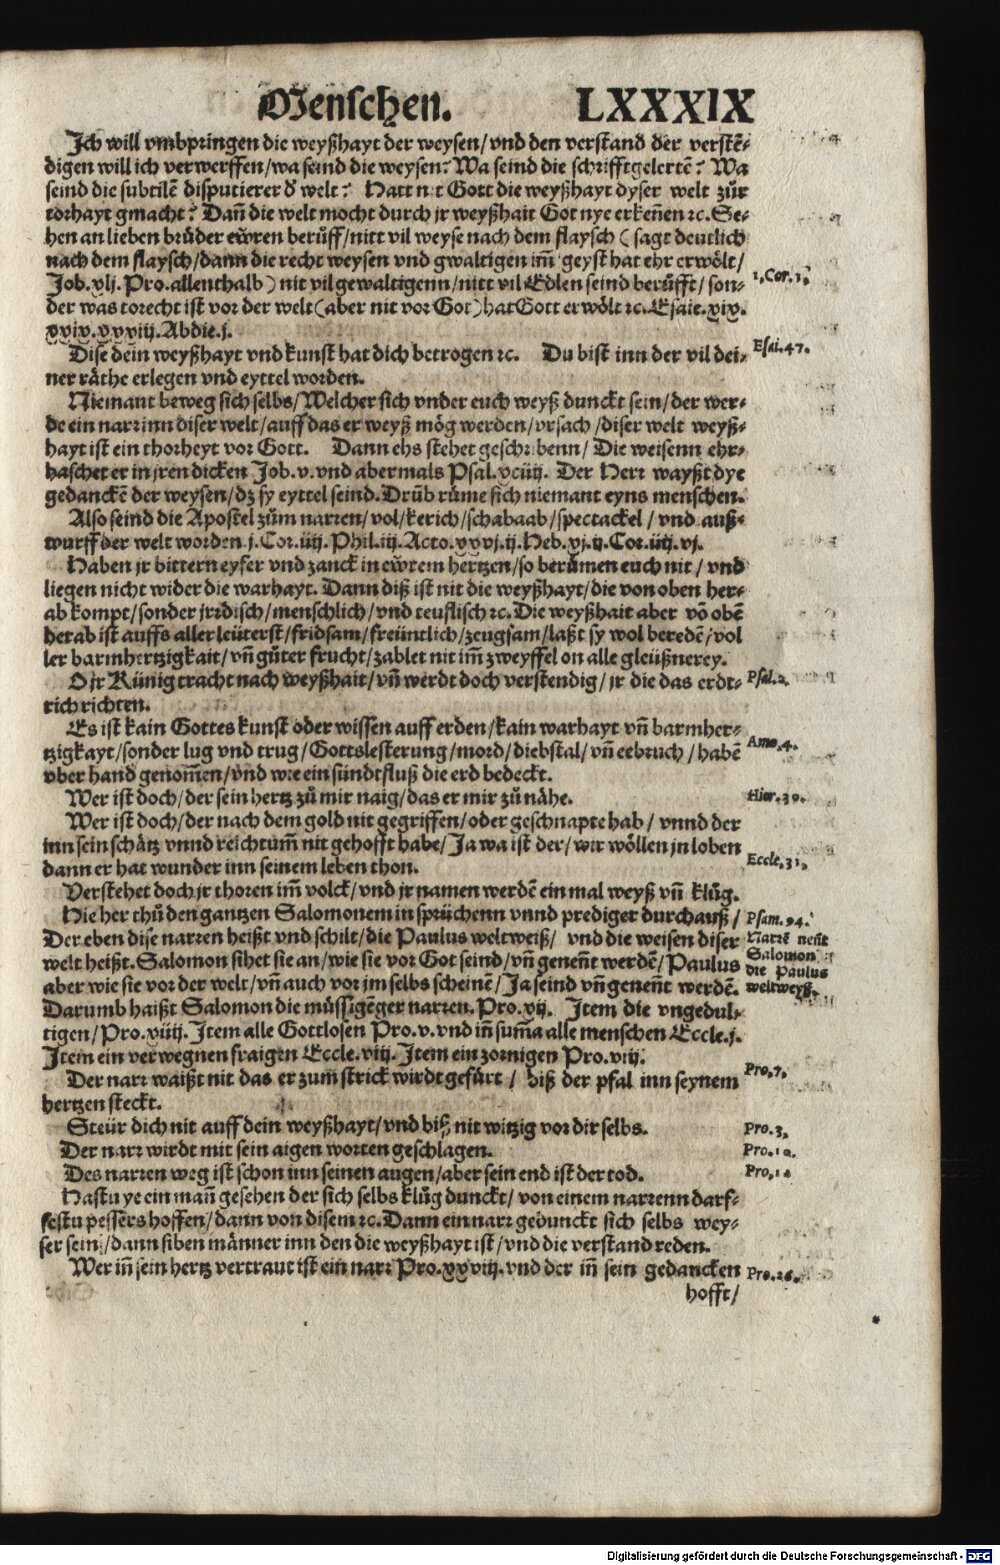 Menschen. LXXXIX
Jch will vmbpringen die weyßhayt der weysen/vnd den verstand der verstẽ-
digen will ich verwerffen/wa seind die weysen? Wa seind die schrifftgelertẽ? Wa
seind die subtilẽ disputierer d̕ welt? Hatt nit Gott die weyßhayt dyser welt zůr
torhayt gmacht? Dañ die welt mocht durch jr weyßhait Got nye erkeñen ꝛc. Se-
hen an lieben brůder ewren berůff/nitt vil weyse nach dem flaysch (sagt deutlich
nach dem flaysch/dann die recht weysen vnd gwaltigen im̃ geyst hat ehr erwölt/
Job. xlj. Pro. allenthalb) nit vil gewaltigenn/nitt vil Edlen seind berůfft/son-
1. Cor. 1.
der was torecht ist vor der welt (aber nit vor Got) hat Gott erwölt ꝛc. Esaie. xix.
xxix. xxxiij. Abdie. j.
Dise dein weyßhayt vnd kunst hat dich betrogen ꝛc. Du bist inn der vil dei-
Esai. 47.
ner räthe erlegen vnd eyttel worden.
Niemant beweg sich selbs/Welcher sich vnder euch weyß dunckt sein/der wer-
de ein narr inn diser welt/auff das er weyß mög werden/vrsach/diser welt weyß-
hayt ist ein thorheyt vor Gott. Dann ehs stehet geschribenn/Die weisenn ehr-
haschet er in jren dicken Job. v. vnd abermals Psal. xciiij. Der Herr wayßt dye
gedanckẽ der weysen/dz sy eyttel seind. Drũb rüme sich niemant eyns menschen.
Also seind die Apostel zům narren/vol/kerich/schabaab/spectackel/vnd auß-
wurff der welt worden j. Cor. iiij. Phil. iij. Acto. xxvj. ij. Heb. xj. ij. Cor. iiij. vj.
Haben jr bittern eyfer vnd zanck in ewrem hertzen/so berümen euch nit/vnd
liegen nicht wider die warhayt. Dann diß ist nit die weyßhayt/die von oben her-
ab kompt/sonder jrrdisch/menschlich/vnd teuflisch ꝛc. Die weyßhait aber võ obẽ
herab ist auffs aller leüterst/fridsam/freüntlich/zeugsam/laßt sy wol beredẽ/vol
ler barmhertzigkait/vñ gůter frucht/zablet nit im̃ zweyffel on alle gleüßnerey.
O jr Künig tracht nach weyßhait/vñ werdt doch verstendig/jr die das erdt-
Psal. 2.
rich richten.
Es ist kain Gottes kunst oder wissen auff erden/kain warhayt vñ barmher-
tzigkayt/sonder lug vnd trug/Gottslesterung/mord/diebstal/vñ eebruch/habẽ
Amo. 4.
vber hand genom̃en/vnd wie ein sündtfluß die erd bedeckt.
Wer ist doch/der sein hertz zů mir naig/das er mir zů nähe.
Hier. 30.
Wer ist doch/der nach dem gold nit gegriffen/oder geschnapte hab/vnnd der
inn sein schätz vnnd reichtum̃ nit gehofft habe/Ja wa ist der/wir wöllen jn loben
Eccle. 31.
dann er hat wunder inn seinem leben thon.
Verstehet doch jr thoren im̃ volck/vnd jr namen werdẽ ein mal weyß vñ klůg.
Hie her thů den gantzen Salomonem in sprüchenn vnnd prediger durchauß/
Psam. 94.
Der eben dise narren heißt vnd schilt/die Paulus weltweiß/vnd die weisen diser
Narrẽ neñt
welt heißt. Salomon sihet sie an/wie sie vor Got seind/vñ geneñt werdẽ/Paulus
Salomon
die Paulus
aber wie sie vor der welt/vñ auch vor jm selbs scheinẽ/Ja seind vñ geneñt werdẽ.
weltweyß.
Darumb haißt Salomon die müssigẽger narren. Pro. xij. Jtem die vngedul-
tigen/Pro. xiiij. Jtem alle Gottlosen Pro. v. vnd iñ sum̃a alle menschen Eccle. j.
Jtem ein verwegnen fraigen Eccle. viij. Jtem ein zornigen Pro. viij.
Der narr waißt nit das er zum strick wirdt gefürt/biß der pfal inn seynem
Pro. 7.
hertzen steckt.
Steür dich nit auff dein weyßhayt/vnd biß nit witzig vor dir selbs.
Pro. 3.
Der narr wirdt mit sein aigen worten geschlagen.
Pro. 10.
Des narren weg ist schon inn seinen augen/aber sein end ist der tod.
Pro. 12
Hastu ye ein mañ gesehen der sich selbs klůg dunckt/von einem narrenn darf-
festu pessers hoffen/dann von disem ꝛc. Dann ein narr gedunckt sich selbs wey-
ser sein/dann siben männer inn den die weyßhayt ist/vnd die verstand reden.
Wer iñ sein hertz vertraut ist ein narr Pro. xxviij. vnd der iñ sein gedancken
Pro. 26.
hofft/
Digitalisierung gefördert durch die Deutsche Forschungsgemeinschaft - DFG